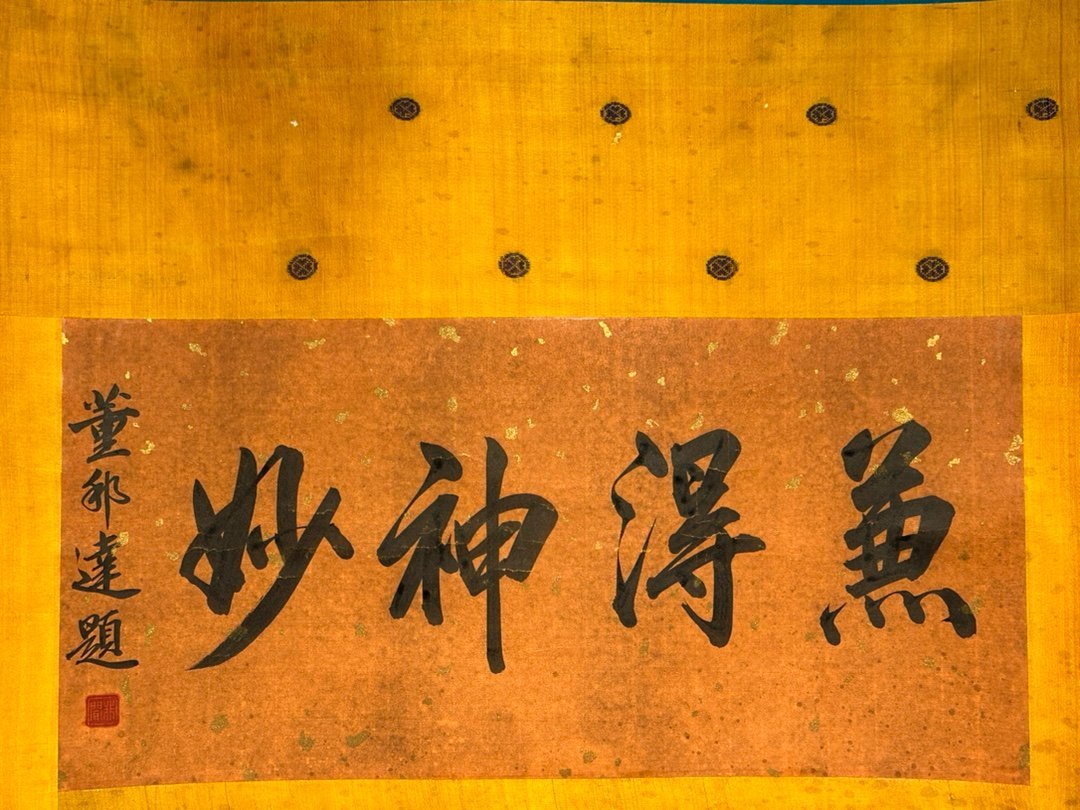 兼得神妙
董邦達題